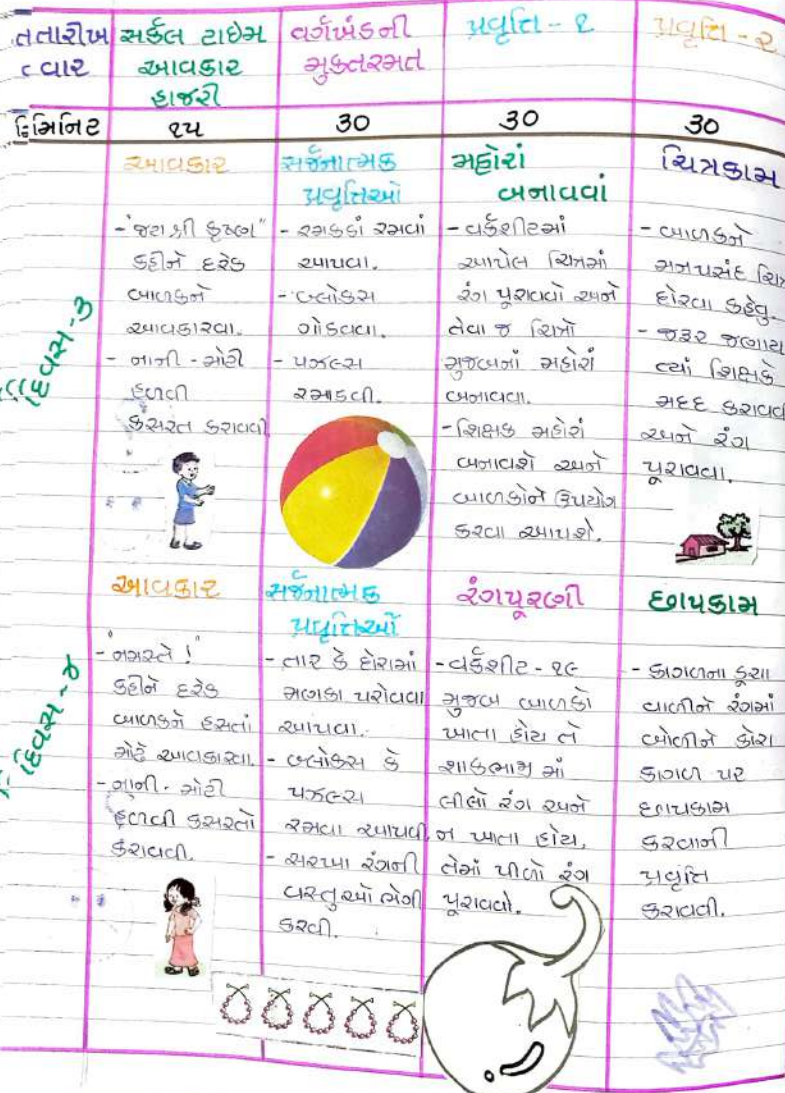 તારીખ
વાર
સર્કલ ટાઇમ
આવકાર
હાજરી
વર્ગખંડની
મુક્તરમત
પ્રવૃત્તિ - ૧
પ્રવૃત્તિ - ૨
મિનિટ
૧૫
30
30
30
દિવસ-૩
આવકાર
-"જય શ્રી કૃષ્ણ"
કહીને દરેક
બાળકને
આવકારવા.
- નાની - મોટી
હળવી
કસરત કરાવવી
સર્જનાત્મક
પ્રવૃત્તિઓ
- રમકડાં રમવાં
આપવા.
- બ્લોક્સ
ગોઠવવા.
- પઝલ્સ
રમાડવી.
મહોરાં
બનાવવાં
- વર્કશીટમાં
આપેલ ચિત્રમાં
રંગ પૂરાવવો અને
તેવા જ ચિત્રો
મુજબનાં મહોરાં
બનાવવા.
- શિક્ષક મહોરાં
બનાવશે અને
બાળકોને ઉપયોગ
કરવા આપશે.
ચિત્રકામ
- બાળકને
મનપસંદ ચિત્ર
દોરવા કહેવુ.
- જરૂર જણાય
ત્યાં શિક્ષકે
મદદ કરાવવી
અને રંગ
પૂરાવવા.
દિવસ-૪
આવકાર
- "નમસ્તે !"
કહીને દરેક
બાળકને હસતાં
મોઢે આવકારવા.
- નાની - મોટી
હળવી કસરતો
કરાવવી.
સર્જનાત્મક
પ્રવૃત્તિઓ
- તાર કે દોરામાં
મણકા પરોવવા
આપવા.
- બ્લોક્સ કે
પઝલ્સ
રમવા આપવી
- સરખા રંગની
વસ્તુઓ ભેગી
કરવી.
રંગપૂરણી
- વર્કશીટ - ૧૯
મુજબ બાળકો
ખાતા હોય તે
શાકભાજી માં
લીલો રંગ અને
ન ખાતા હોય,
તેમાં પીળો રંગ
પૂરાવવો.
છાપકામ
- કાગળના ડૂચા
વાળીને રંગમાં
બોળીને કોરા
કાગળ પર
છાપકામ
કરવાની
પ્રવૃત્તિ
કરાવવી.